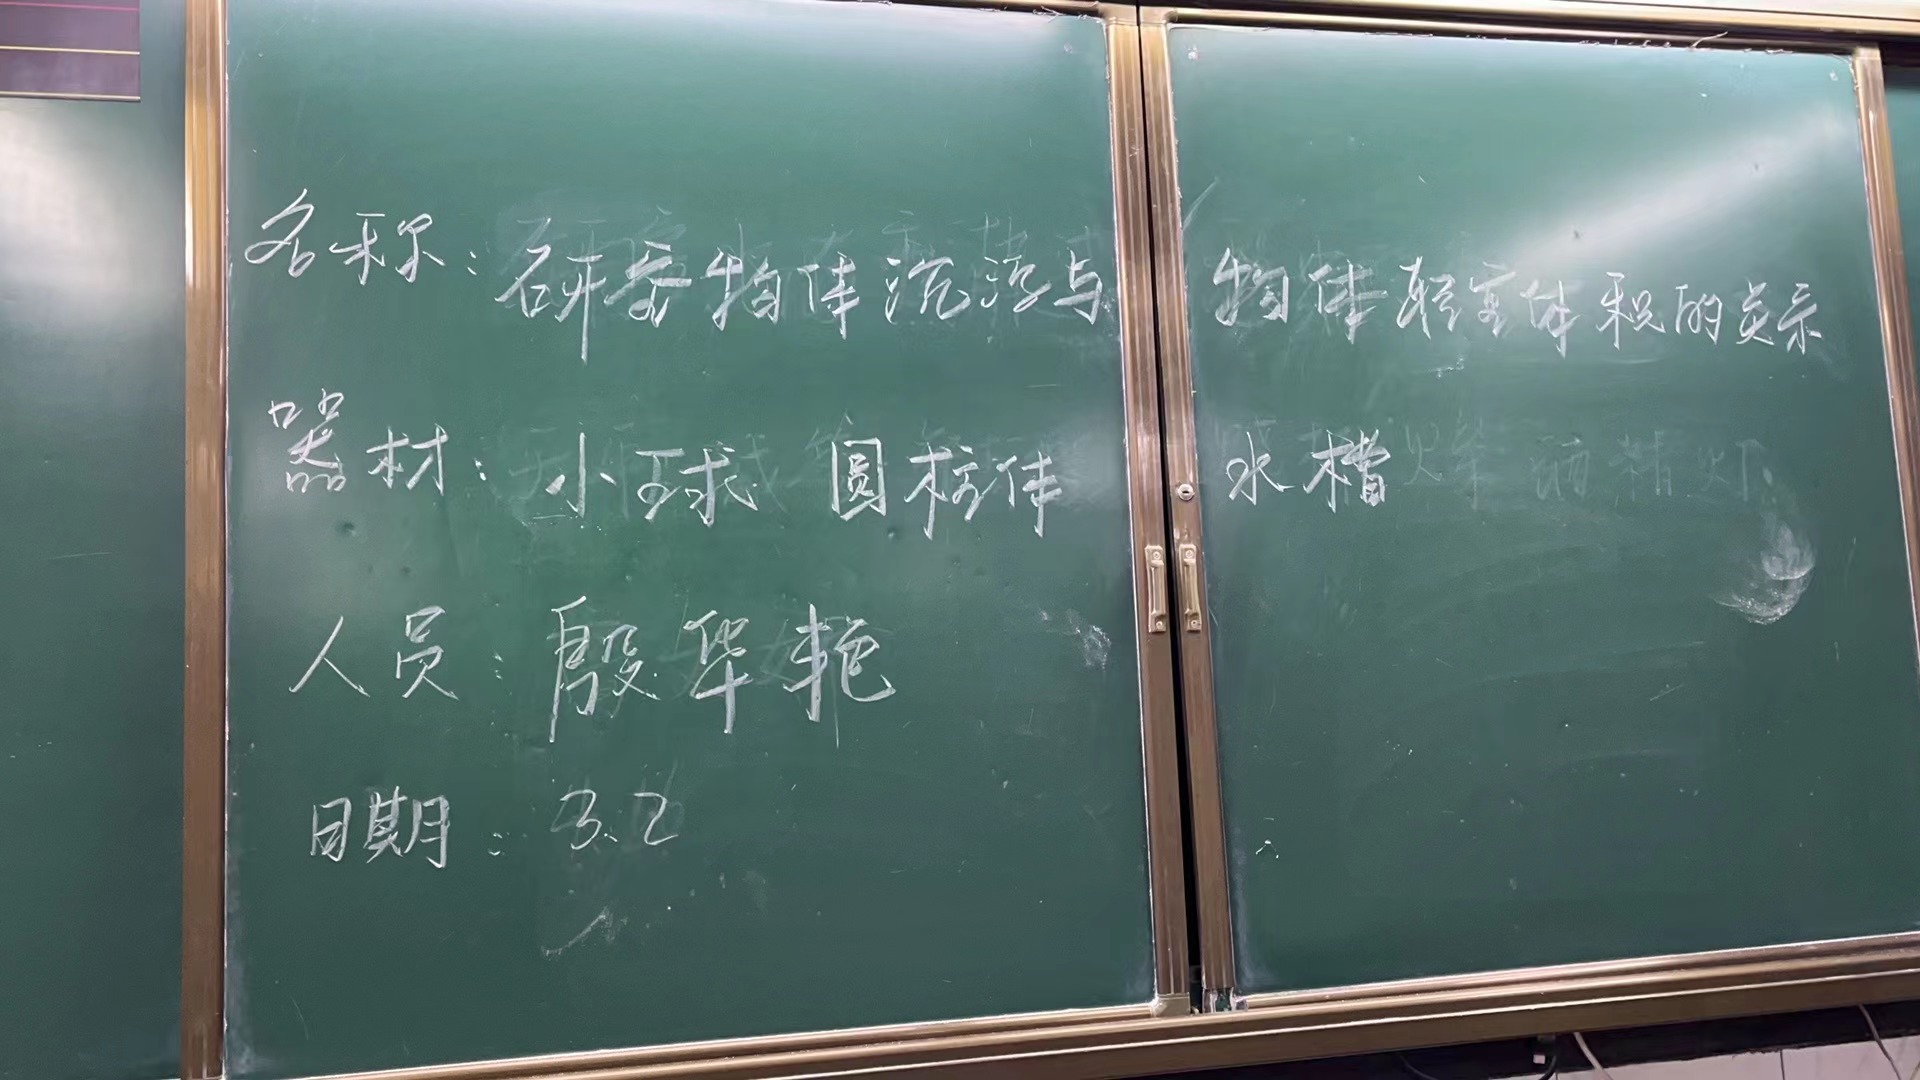 名称：研究物体沉浮与物体轻重体积的关系
器材：小球 圆柱体 水槽
人员：殷华艳
日期：3.2